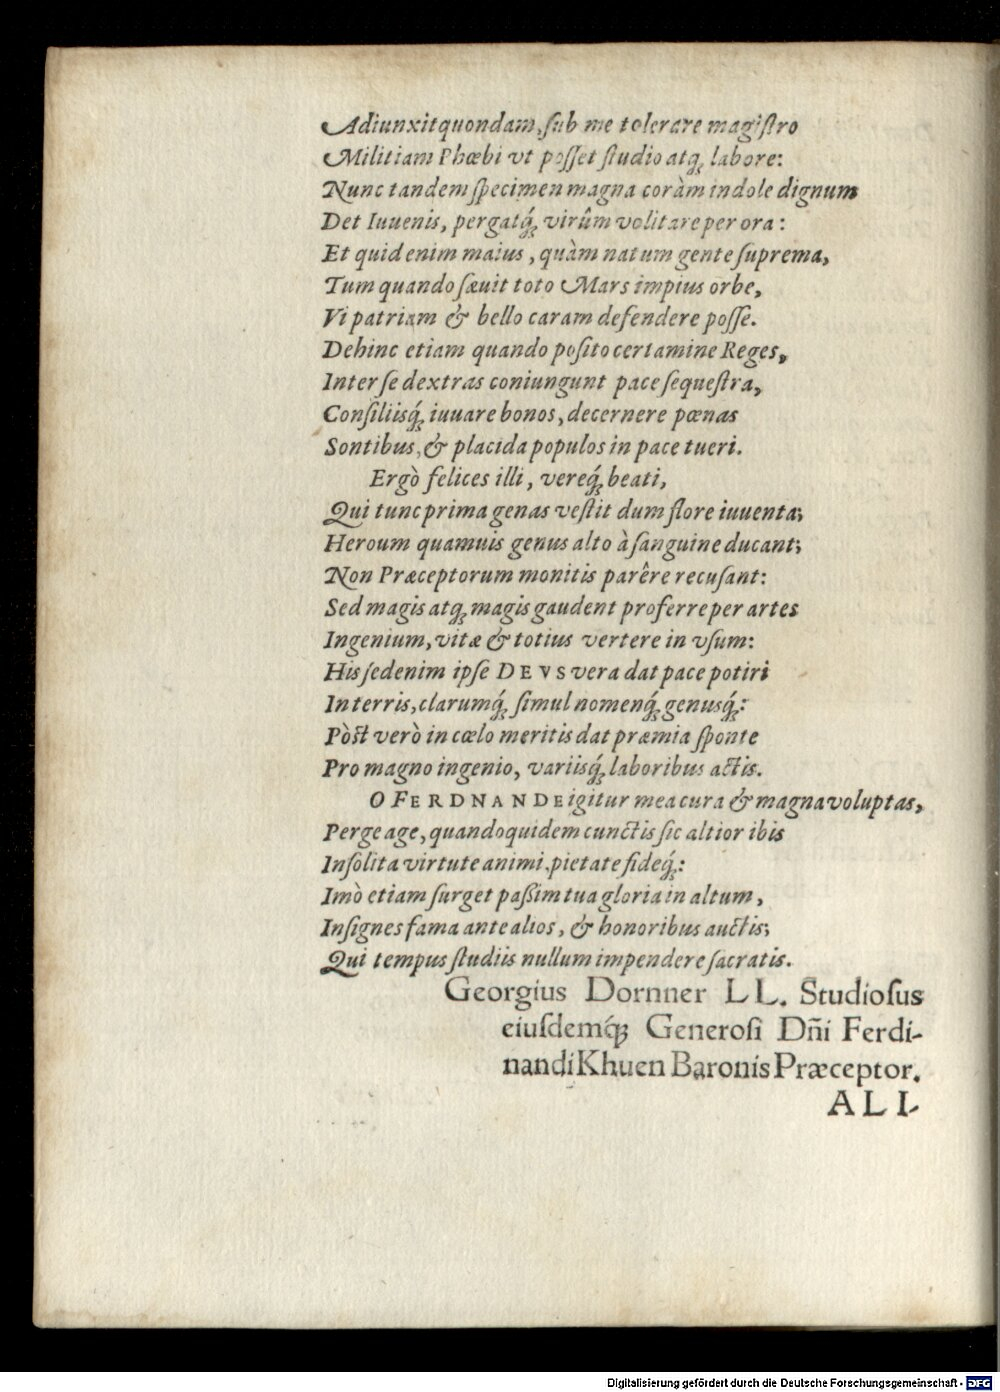 Adiunxit quondam, ſub me tolerare magiſtro
Militiam Phœbi vt poſſet ſtudio atq́; labore:
Nunc tandem ſpecimen magna coràm indole dignum
Det Iuuenis, pergatq́; virûm volitare per ora:
Et quid enim maius, quàm natum gente ſuprema,
Tum quando ſæuit toto Mars impius orbe,
Vi patriam & bello caram defendere poſſe.
Dehinc etiam quando poſito certamine Reges,
Inter ſe dextras coniungunt pace ſequeſtra,
Conſiliisq́; iuuare bonos, decernere pœnas
Sontibus, & placida populos in pace tueri.
Ergò felices illi, vereq́; beati,
Qui tunc prima genas veſtit dum flore iuuenta;
Heroum quamuis genus alto à ſanguine ducant;
Non Præceptorum monitis parêre recuſant:
Sed magis atq; magis gaudent proferre per artes
Ingenium, vitæ & totius vertere in vſum:
His ſedenim ipſe DEVS vera dat pace potiri
In terris, clarumq́; ſimul nomenq́; genusq́;:
Pòſt verò in cœlo meritis dat præmia ſponte
Pro magno ingenio, variisq́; laboribus actis.
O FERDNANDE igitur mea cura & magna voluptas,
Perge age, quandoquidem cunctis ſic altior ibis
Inſolita virtute animi, pietate fideq́;:
Imò etiam ſurget paßim tua gloria in altum,
Inſignes fama ante alios, & honoribus auctis;
Qui tempus ſtudiis nullum impendere ſacratis.
Georgius Dornner LL. Studioſus
eiuſdemq́; Generoſi Dñi Ferdi-
nandi Khuen Baronis Præceptor.
ALI-
Digitalisierung gefördert durch die Deutsche Forschungsgemeinschaft - DFG